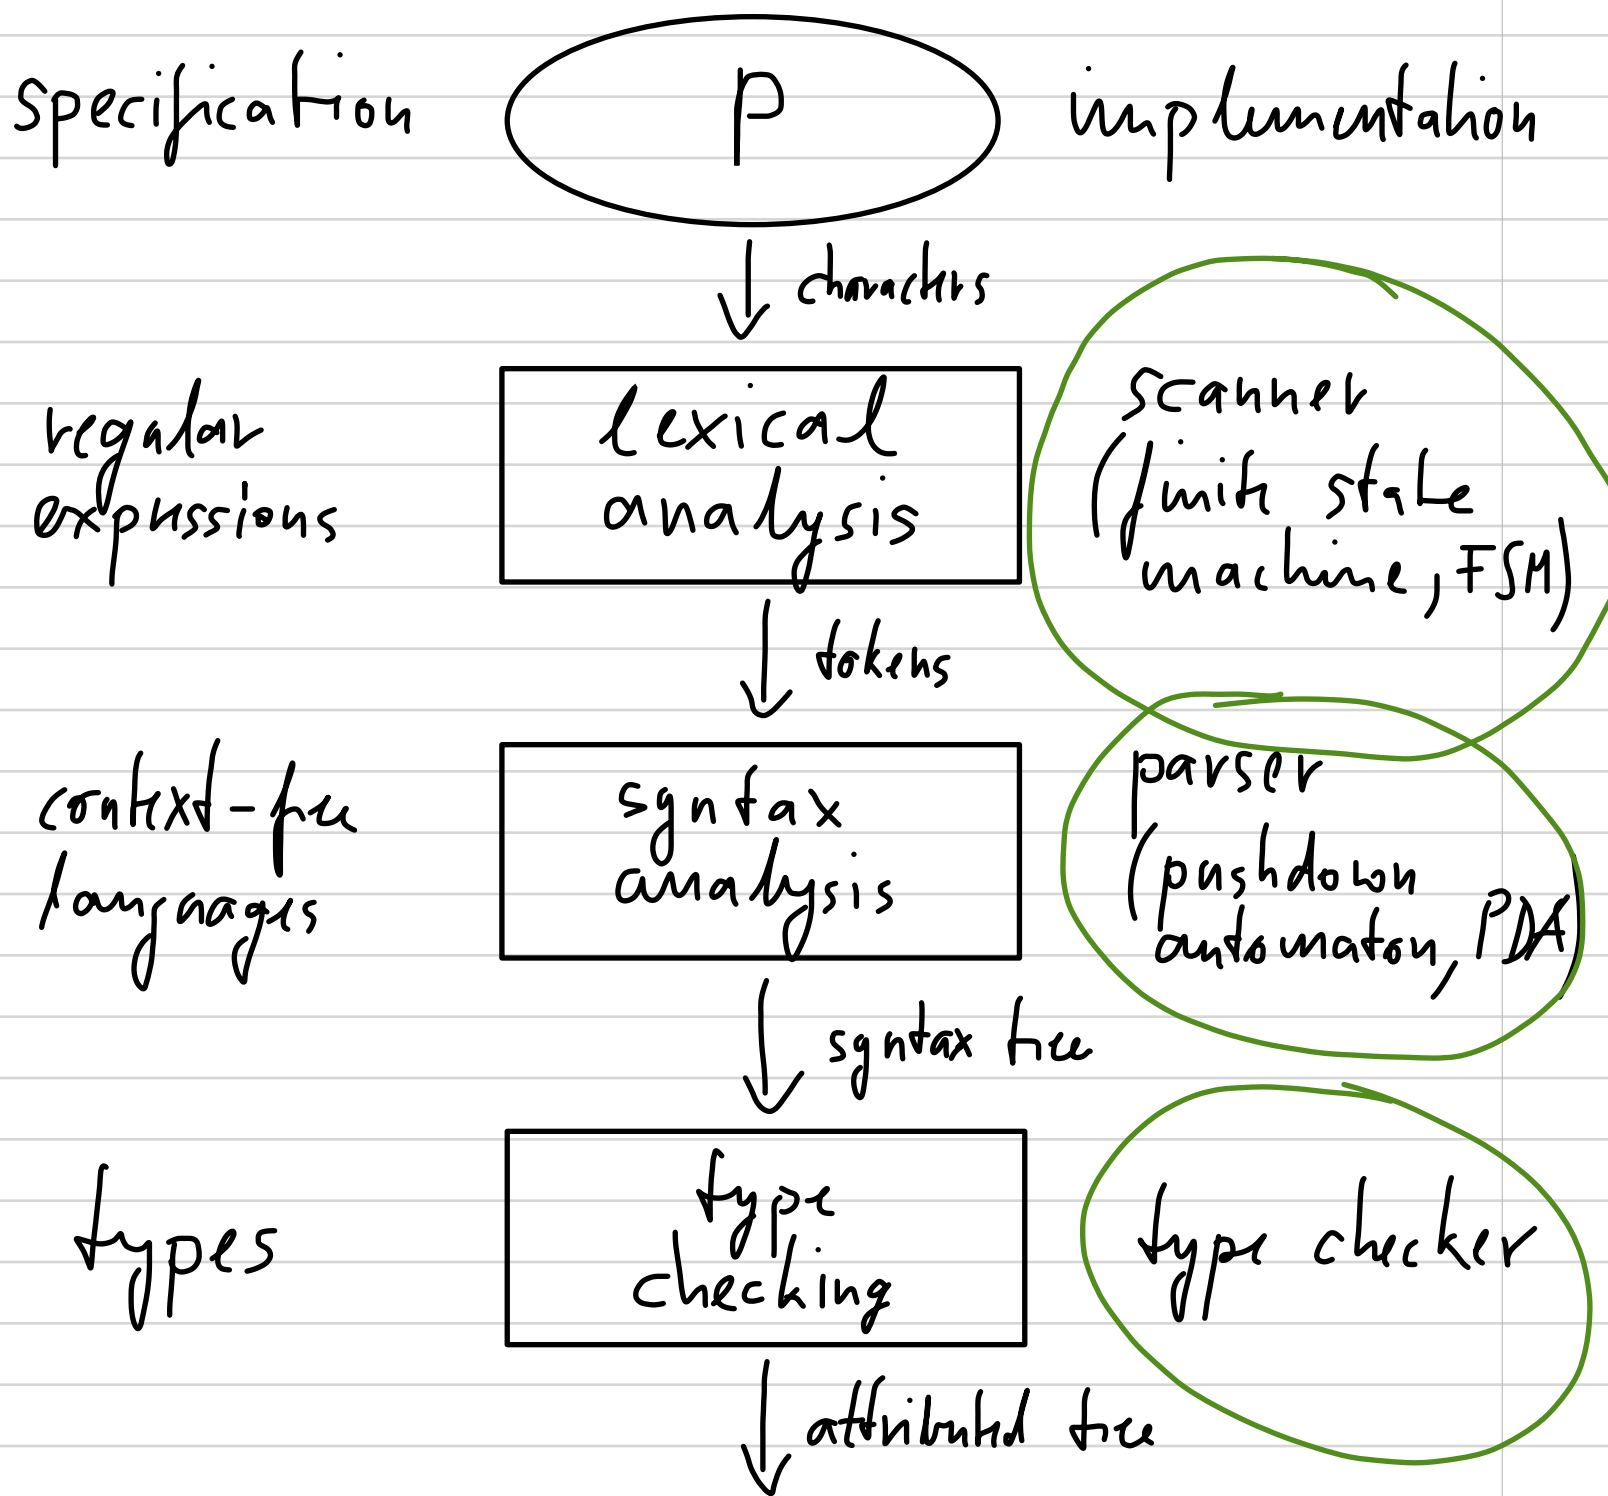 specification
P
implementation
characters
regular
expressions
lexical
analysis
scanner
(finite state
machine, FSM)
tokens
context-free
languages
syntax
analysis
parser
(pushdown
automaton, PDA)
syntax tree
types
type
checking
type checker
attributed tree